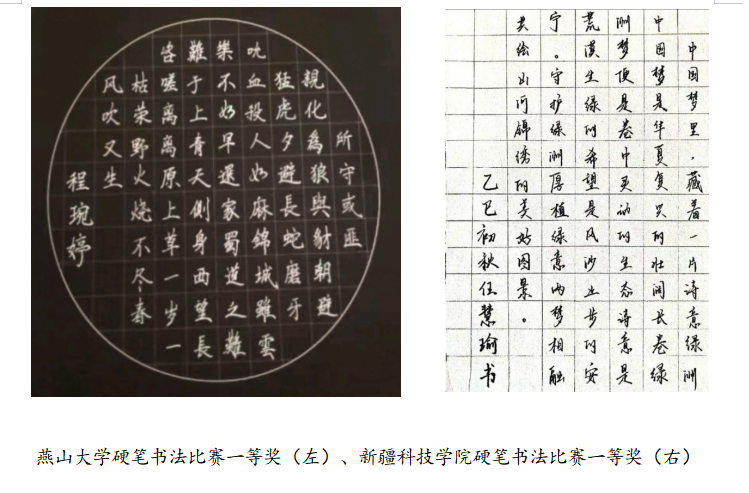 所守或匪
親化為狼與豺朝避
猛虎夕避長蛇磨牙
吮血投人如麻錦城雖雲
樂不如早還家蜀道之難
難于上青天側身西望長
咨嗟离离原上草一岁一
枯荣野火烧不尽春
风吹又生
程琬婷
中国梦里，藏着一片诗意绿洲
中国梦是华夏复兴的壮阔长卷绿
洲梦便是卷中灵动的生态诗意是
荒漠生绿的希望是风沙止步的安
宁。守护绿洲厚植绿意两梦相融
共绘山河锦绣的美好图景。
乙巳初秋任慧瑜书
燕山大学硬笔书法比赛一等奖（左）、新疆科技学院硬笔书法比赛一等奖（右）